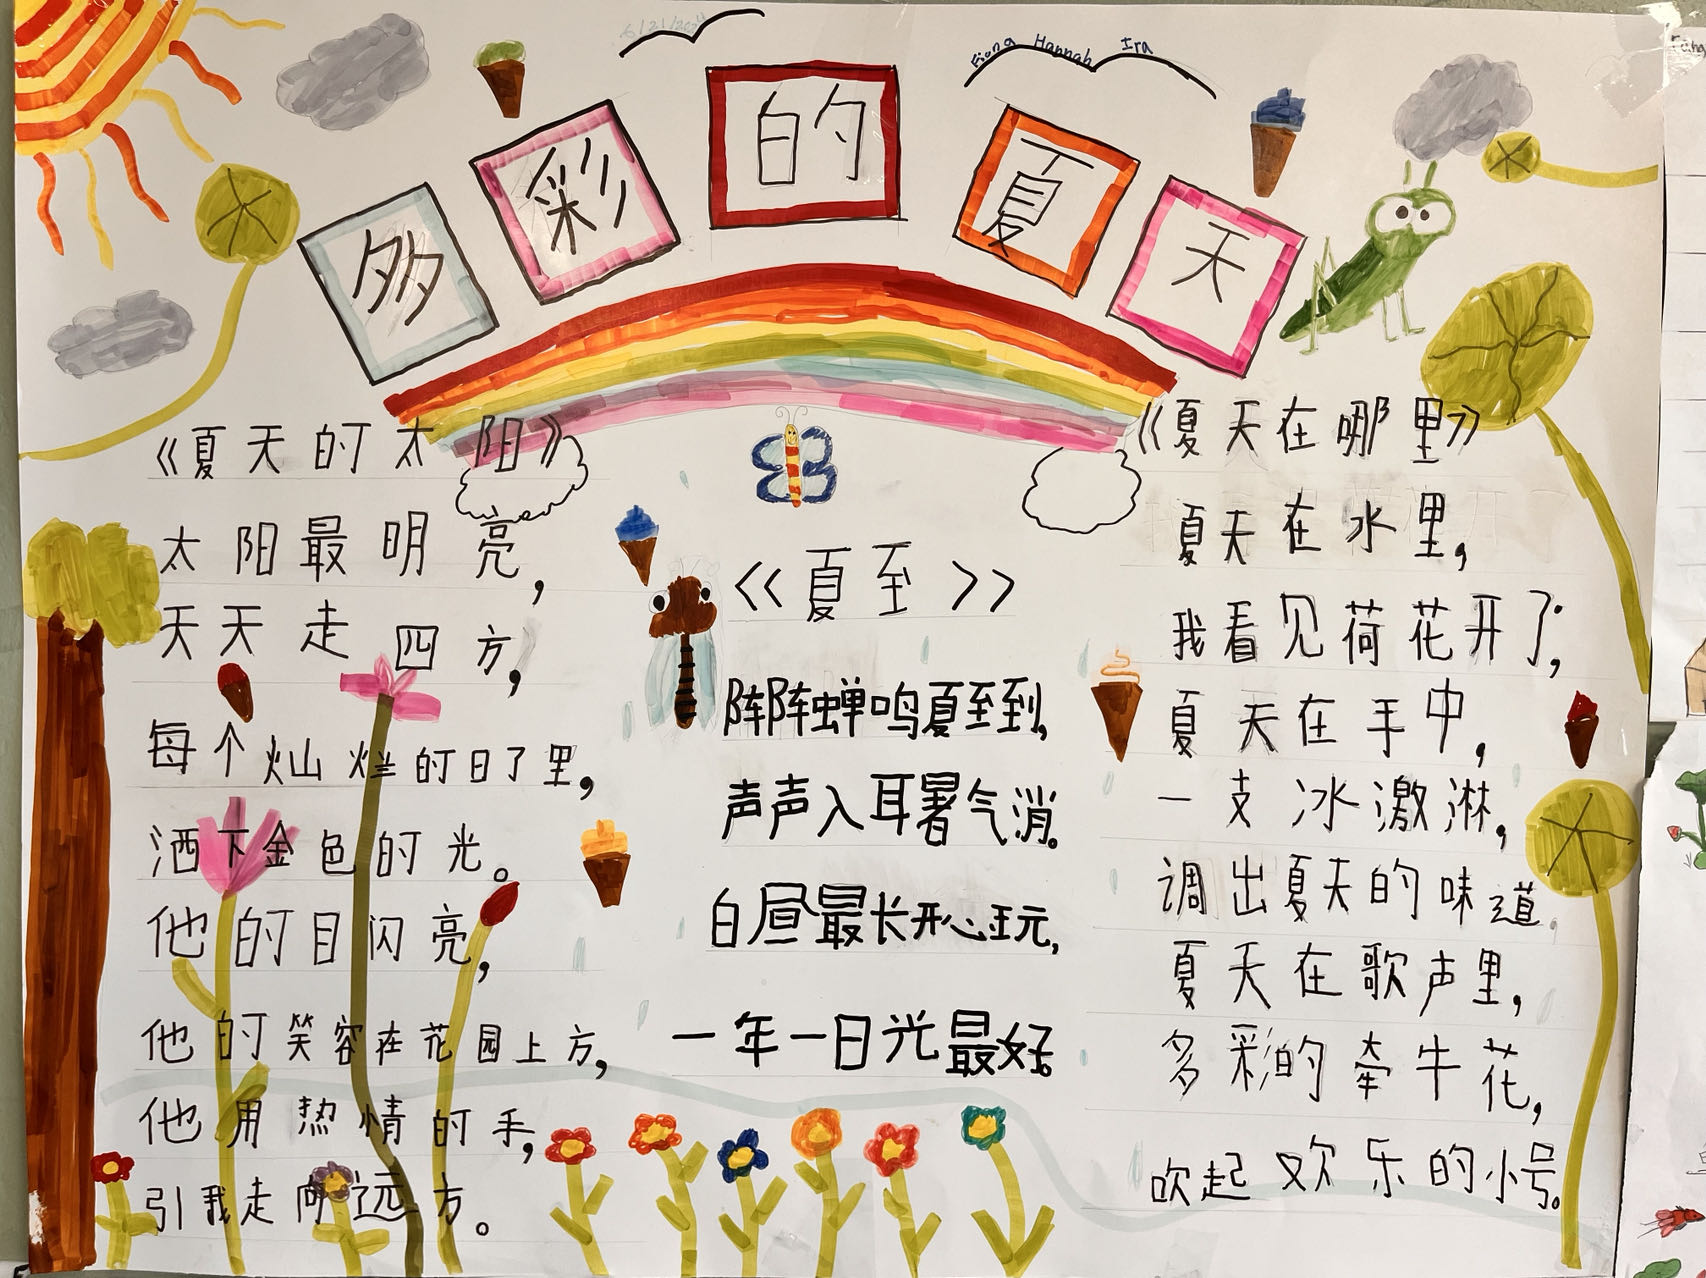 6/21/2024
Fiona Hannah Ira
多彩的夏天
《夏天的太阳》
太阳最明亮，
天天走四方，
每个灿烂的日了里，
洒下金色的光。
他的目闪亮，
他的笑容在花园上方，
他用热情的手，
引我走向远方。
<<夏至>>
阵阵蝉鸣夏至到，
声声入耳暑气消。
白昼最长开心玩，
一年一日光最好。
《夏天在哪里》
夏天在水里，
我看见荷花开了，
夏天在手中，
一支冰激淋，
调出夏天的味道，
夏天在歌声里，
多彩的牵牛花，
吹起欢乐的小号。